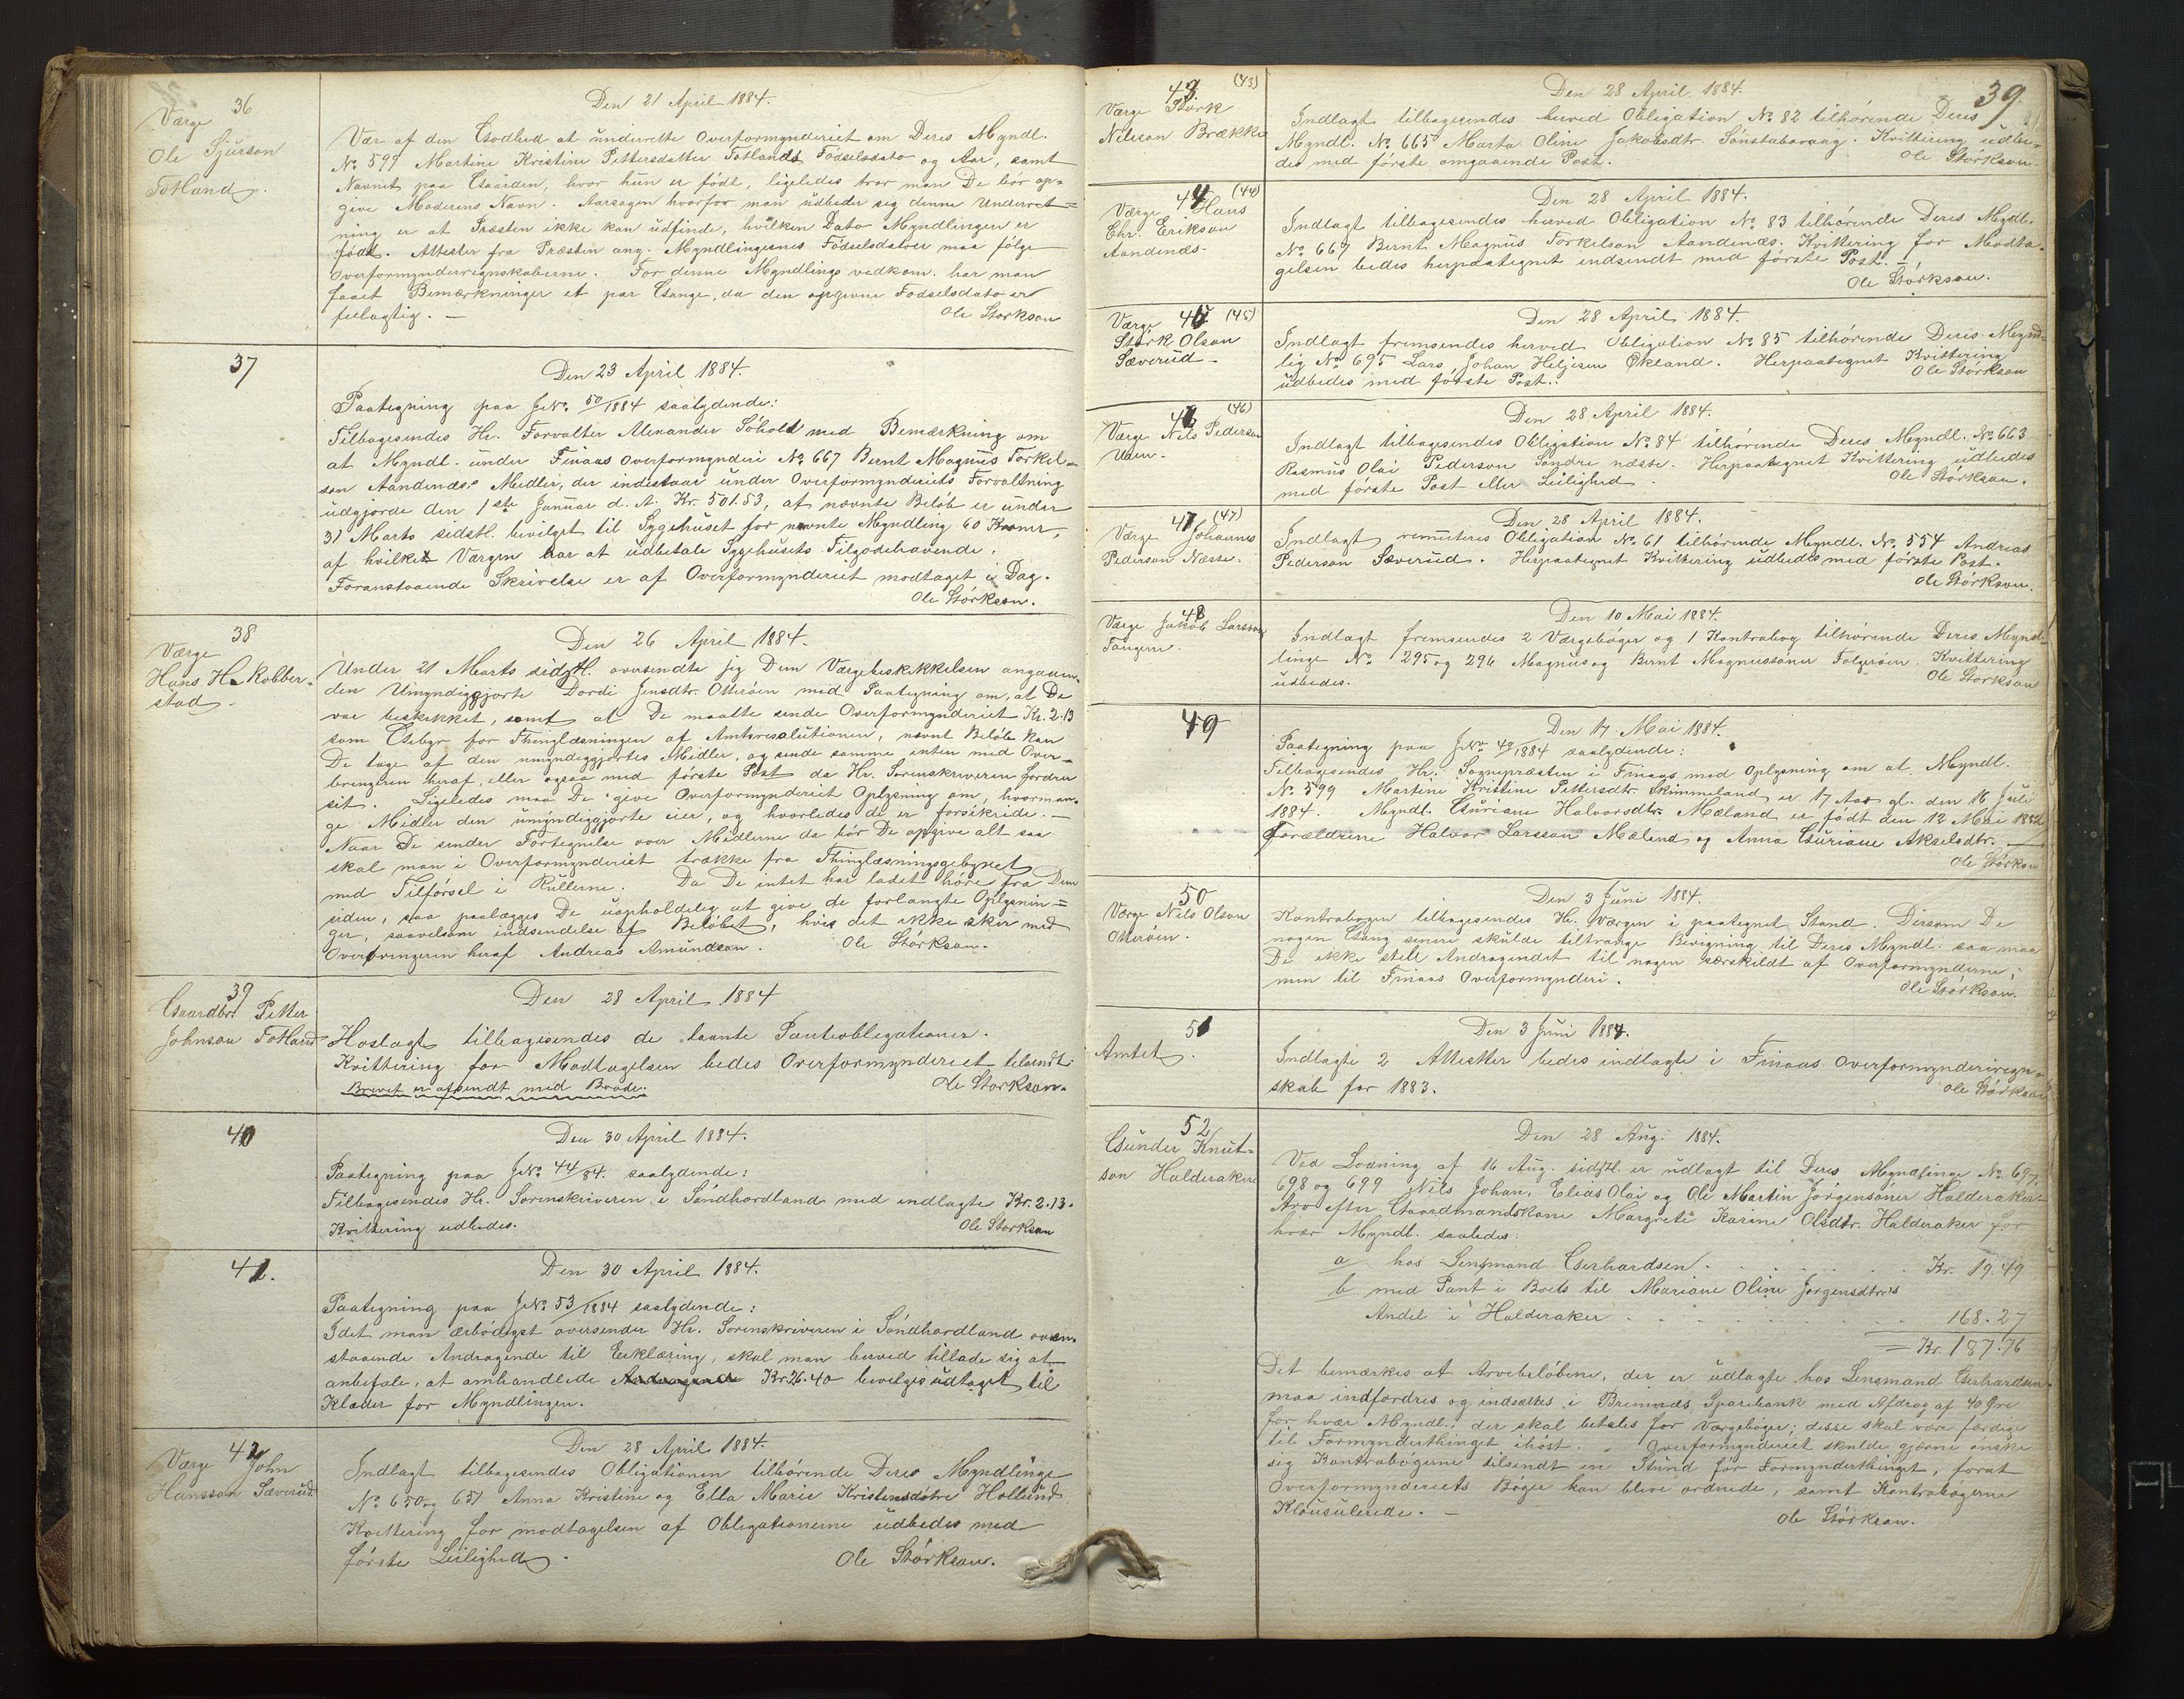 36
Værge
Ole Sjurson
Fotland.
Den 21 April 1884.
Vær af den Godhed at underrette Overformynderiet om Deres Myndl.
No 599 Martine Kristine Pettersdatter Fotlands Fødselsdato og Aar, samt
Navnet paa Gaarden, hvor hun er født, ligeledes tror man De bør op-
give Moderens Navn. Aarsagen hvorfor man udbeder sig denne Underret=
ning er at Præsten ikke kan udfinde, hvilken Dato Myndlingen er
født. Attester fra Præsten ang. Myndlingernes Fødselsdatoer maa følge
Overformynderregnskaberne. For denne Myndlings vedkom. har man
faaet Bemærkninger et par Gange, da den opgivne Fødselsdato er
feilagtig. —
Ole Størkson
37
Den 23 April 1884.
Paategning paa JNo. 50/1884 saalydende:
Tilbagesendes Hr. Forvalter Alexander Søholt med Bemærkning om
at Myndl. under Finaas Overformynderi No 667 Bernt Magnus Torkel-
son Aandenæs' Midler, der indestaar under Overformynderiets Forvaltning
udgjorde den 1ste Januar d. A. Kr. 501.53, at nævnte Beløb er under
31 Marts sidstl. bevilget til Sygehuset for nævnte Myndling 60 Kroner,
af hvilket Værgen har at udbetale Sygehusets Tilgodehavende.
Foranstaaende Skrivelse er af Overformynderiet modtaget i Dag.
Ole Størkson.
38
Værge
Hans H. Kobber-
stad.
Den 26 April 1884.
Under 21 Marts sidstl. oversendte jeg Dem Værgebeskikkelsen angaaen-
den Umyndiggjorte Dordi Jensdtr. Otterøen med Paategning om, at De
var beskikket, samt at De maatte sende Overformynderiet Kr. 2.13
som Gebyr for Thinglæsningen af Amtsresolutionen, nævnt Beløb kan
De tage af den umyndiggjortes Midler, og sende samme enten med Over-
bringeren heraf, eller ogsaa med første Post da Hr. Sorenskriveren fordrer
sit. Ligeledes maa De give Overformynderiet Oplysning om, hvorman-
ge Midler den umyndiggjorte eier, og hvorledes de er forsikrede. —
Naar De sender Fortegnelse over Midlerne da bør De opgive alt saa
skal man i Overformynderiet trække fra Thinglæsningsgebyret
med Tilførsel i Rullerne. Da De intet har ladet høre fra Dem
siden, saa paalægges De uopholdelig at give de forlangte Oplysnin=
ger, saavelsom indsendelse af Beløbet, hvis det ikke sker med
Overbringeren heraf Andreas Amundson. Ole Størkson.
39
Gaardbr. Petter
Johnson Fotland
Den 28 April 1884
Hoslagt tilbagesendes de laante Panteobligationer.
Kvittering for Modtagelsen bedes Overformynderiet tilsendt.
Brevet er afsendt med Baade.
Ole Størkson.
40
Den 30 April 1884.
Paategning paa JNo. 44/84. saalydende:
Tilbagesendes Hr. Sorenskriveren i Søndhordland med indlagte Kr. 2.13.
Kvittering udbedes.
Ole Størkson
41.
Den 30 April 1884.
Paategning paa JNo. 53/1884 saalydende:
Idet man ærbødigst oversender Hr. Sorenskriveren i Søndhordland oven-
staaende Andragende til Erklæring, skal man herved tillade sig at
anbefale, at omhandlede Kr. 26.40 bevilges udtaget til
Klæder for Myndlingen.
42
Værge John
Hansson Sæverud.
Den 28 April 1884.
Indlagt tilbagesendes Obligationen tilhørende Deres Myndlinge
No 650 og 651 Anna Kristine og Ella Marie Kristensdøtre Hollund
Kvittering for modtagelsen af Obligationerne udbedes med
første Leilighed.
Ole Størkson.
39.
43. (43)
Værge Størk
Nilsson Brække
Den 28 April 1884.
Indlagt tilbagesendes herved Obligation No 82 tilhørende Deres
Myndl. No 665 Marta Oline Jakobsdtr. Sønstabøvaag. Kvittering udbe-
des med første omgaaende Post.
Ole Størkson.
44 (44)
Værge Hans
Chr. Erikson
Aandenæs.
Den 28 April 1884.
Indlagt tilbagesendes herved Obligation No 83 tilhørende Deres Myndl.
No 667 Bernt Magnus Torkilson Aandenæs. Kvittering for Modta-
gelsen bedes herpaategnet indsendt med første Post. —
Ole Størkson.
45 (45)
Værge
Størk Olson
Sæverud.
Den 28 April 1884.
Indlagt fremsendes herved Obligation No 85 tilhørende Deres Mynd-
lig No 695 Lars Johan Heljesen Økland. Herpaategnet Kvittering
udbedes med første Post.
Ole Størkson
46 (46)
Værge Nils Pederson
Den 28 April 1884.
Indlagt tilbagesendes Obligation No 84 tilhørende Deres Myndl. No 663
Rasmus Olai Pederson Søndre næsse. Herpaategnet Kvittering udbedes
med første Post eller Leilighed.
Ole Størkson.
47 (47)
Værge Johannes
Pederson Næsse.
Den 28 April 1884.
Indlagt remitteres Obligation No 61 tilhørende Myndl. No. 554 Andreas
Pederson Sæverud. Herpaategnet Kvittering udbedes med første Post.
Ole Størkson.
48
Værge Jakob Larsson
Tangen.
Den 10 Mai 1884.
Indlagt fremsendes 2 Værgebøger og 1 Kontrabog tilhørende Deres Mynd-
linge No 295 og 296 Magnus og Bernt Magnussøner Folgerøen. Kvittering
udbedes.
Ole Størkson
49
Den 17 Mai 1884.
Paategning paa JNo. 49/1884 saalydende:
Tilbagesendes Hr. Sognepræsten i Finaas med Oplysning om at Myndl.
No. 599 Martine Kristine Pettersdtr. Skimmeland er 17 Aar gl. den 16 Juli
1884. Myndl. Guriane Halvorsdtr. Mæland er født den 12 Mai 1882
Forældrene Halvor Larsson Mæland og Anna Guriane Akselsdtr. —
Ole Størkson
50
Værge Nils Olson
Otterøen.
Den 3 Juni 1884.
Kontrabogen tilbagesendes Hr. Værgen i paategnet Stand. Dersom De
nogen Gang senere skulde tiltrænge Bevigning til Deres Myndl. saa maa
De ikke stille Andragendet til nogen særskildt af Overformynderne;
men til Finaas Overformynderi.
Ole Størkson.
51
Amtet.
Den 3 Juni 1884.
Indlagte 2 Attester bedes indlagte i Finaas Overformynderiregn-
skab for 1883.
Ole Størkson
52
Gunder Knut-
son Halderaker
Den 28 Aug. 1884.
Ved Lodning af 16 Aug. sidstl. er udlagt til Deres Myndlinge No 697,
698 og 699 Nils Johan, Elias Olai og Ole Martin Jørgensøner Halderaker
Arv efter Gaardmandskone Margrete Karine Olsdtr. Halderaker for
hver Myndl. saaledes:
a hos Lensmand Gerhardsen . . . . . Kr. 19.49
b med Pant i Boets til Mariane Oline Jørgensdtrs
Andel i Halderaker . . . . . 168.27
= Kr. 187.76
Det bemærkes at Arvebeløbene, der er udlagte hos Lensmand Gerhardsen
maa indfordres og indsættes i Bremnæs Sparebank med Afdrag af 40 Øre
for hvær Myndl., der skal betales for Værgebøger; disse skal være færdige
til Formynderthinget ihøst. " Overformynderiet skulde gjerne ønske
sig Kontrabøgerne tilsendt en Stund før Formynderthinget, forat
Overformynderiets Bøger kan blive ordnede, samt Kontrabøgerne
Klausulerede. —
Ole Størkson.